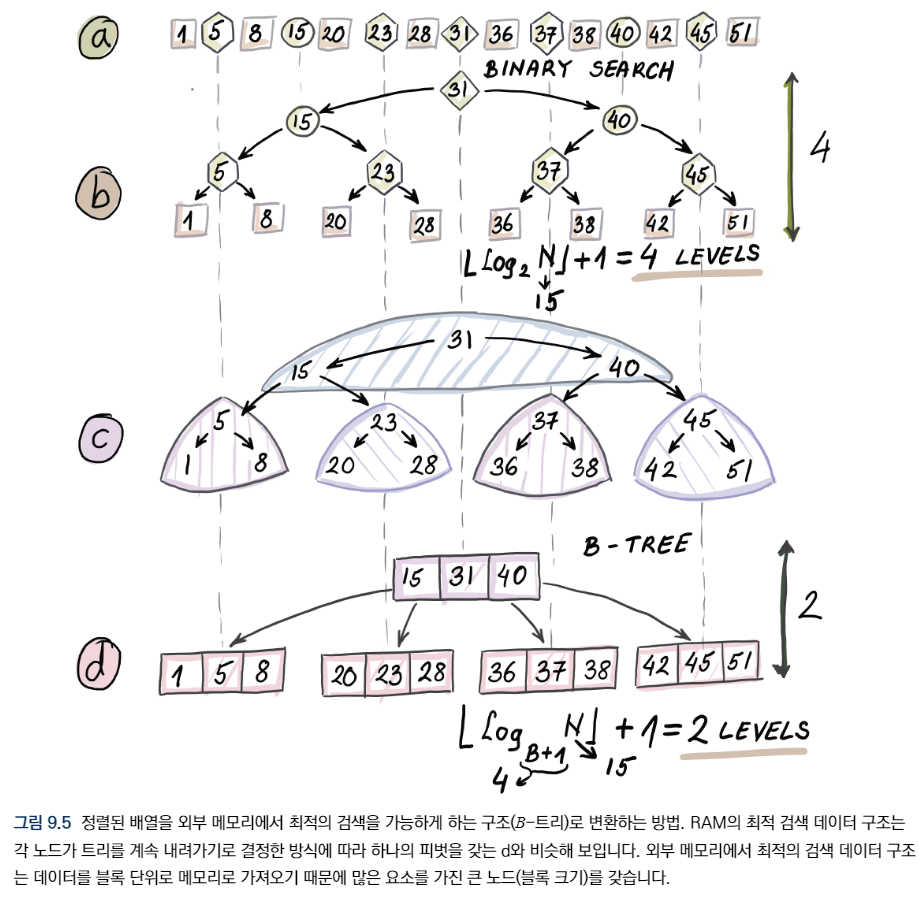 a 1 5 8 15 20 23 28 31 36 37 38 40 42 45 51
BINARY SEARCH
31
15 40
4
5 23 37 45
b
1 8 20 28 36 38 42 51
⌊Log₂ N⌋ + 1 = 4 LEVELS
15
31
15 40
c
5 23 37 45
1 8 20 28 36 38 42 51
B-TREE
15 31 40
2
d
1 5 8 20 23 28 36 37 38 42 45 51
⌊Log B+1 N⌋ + 1 = 2 LEVELS
4 15
그림 9.5 정렬된 배열을 외부 메모리에서 최적의 검색을 가능하게 하는 구조(B-트리)로 변환하는 방법. RAM의 최적 검색 데이터 구조는
각 노드가 트리를 계속 내려가기로 결정한 방식에 따라 하나의 피벗을 갖는 d와 비슷해 보입니다. 외부 메모리에서 최적의 검색 데이터 구조
는 데이터를 블록 단위로 메모리로 가져오기 때문에 많은 요소를 가진 큰 노드(블록 크기)를 갖습니다.